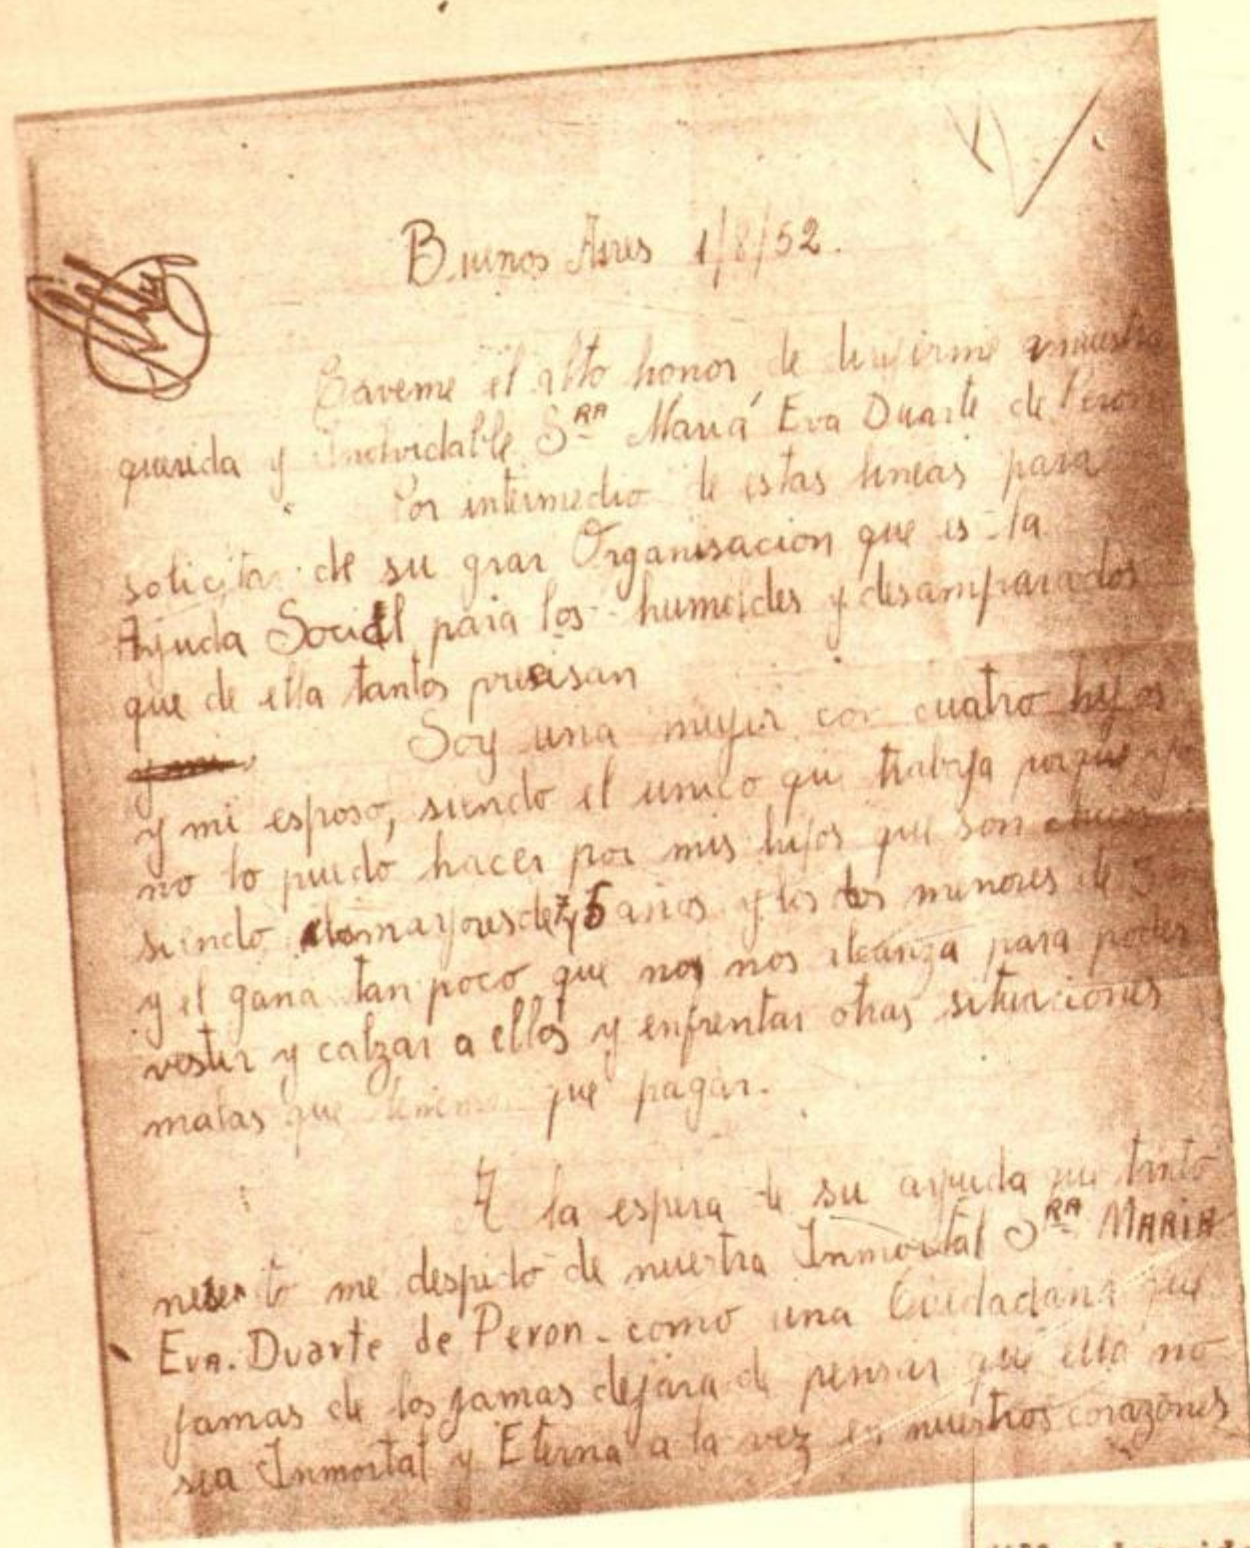 Buenos Aires 1/8/52.
Caveme el alto honor de dirijirme a nuestra
querida y Inolvidable SRA María Eva Duarte de Peron
Por intermedio de estas lineas para
solicitar de su gran Organisacion que es la
Ayuda Social para los humeldes y desamparados
que de ella tantos presisan
Soy una mujer con cuatro hijos
y mi esposo, siendo el unico que trabaja porque yo
no lo puedo hacer por mis hijos que son chicos
siendo los mayores de 7 y 5 años y los dos menores de 3
y el gana tan poco que no nos alcanza para poder
vestir y calzar a ellos y enfrentar otras situaciones
malas que tenemos que pagar.
A la espera de su ayuda que tanto
me despido de nuestra Inmortal SRA MARIA
EVA. Duarte de Peron - como una Ciudadana que
jamas de los jamas dejara de pensar que ella no
sea Inmortal y Eterna a la vez en nuestros corazones